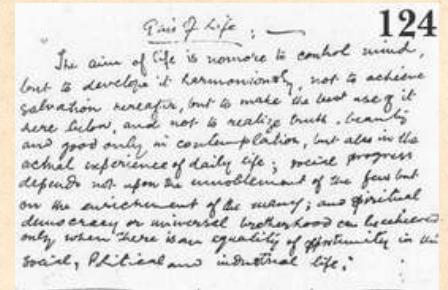 124
Aim of Life :—
"The aim of life is no more to control mind,
but to develop it harmoniously, not to achieve
salvation hereafter, but to make the best use of it
here below, and not to realize truth, beauty
and good only in contemplation, but also in the
actual experience of daily life; social progress
depends not upon the ennoblement of the few but
on the enrichment of the many; and spiritual
democracy or universal brotherhood can be achieved
only when there is an equality of opportunity in the
social, political and industrial life."